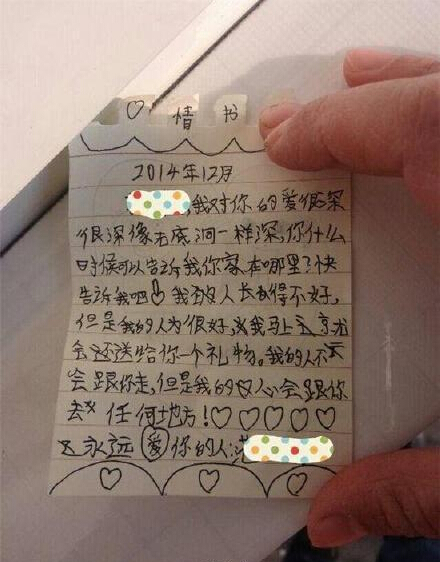 ♡ 情 书
2014年12月
,我对你的爱很深
很深像无底洞一样深,你什么
时候可以告诉我你家在哪里?快
告诉我吧!我人长得不好,
但是我的人为很好,我马上
会还送给你一个礼物。我的人不
会跟你走,但是我的心会跟你
去任何地方!♡♡♡♡♡
永远爱你的人: